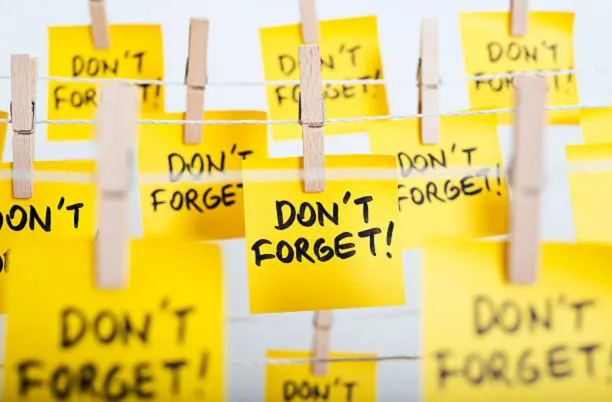 DON'T
DON'T
FORGET!
DON'T
FORGET!
DON'T
FORGET
DON'T
FORGET!
DON'T
DON'T
FORGET!
DON'T
FORGET!
DON'T
FORGET!
DON'T